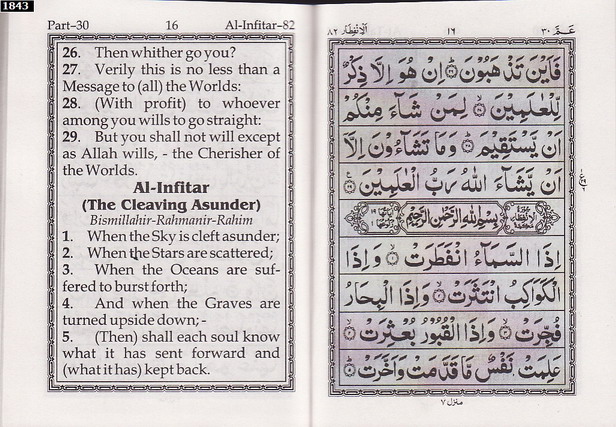 1843
Part–30 16 Al-Infitar–82
26. Then whither go you?
27. Verily this is no less than a
Message to (all) the Worlds:
28. (With profit) to whoever
among you wills to go straight:
29. But you shall not will except
as Allah wills, - the Cherisher of
the Worlds.
Al-Infitar
(The Cleaving Asunder)
Bismillahir-Rahmanir-Rahim
1. When the Sky is cleft asunder;
2. When the Stars are scattered;
3. When the Oceans are suf-
fered to burst forth;
4. And when the Graves are
turned upside down; -
5. (Then) shall each soul know
what it has sent forward and
(what it has) kept back.
عَمَّ ٣٠ ١٦ الانفطار ٨٢
فَاَيْنَ تَذْهَبُوْنَ ۝٢٦ اِنْ هُوَ اِلَّا ذِكْرٌ
لِّلْعٰلَمِيْنَ ۝٢٧ لِمَنْ شَآءَ مِنْكُمْ
اَنْ يَّسْتَقِيْمَ ۝٢٨ وَمَا تَشَآءُوْنَ اِلَّاۤ
اَنْ يَّشَآءَ اللّٰهُ رَبُّ الْعٰلَمِيْنَ ۝٢٩
بِسْمِ اللّٰهِ الرَّحْمٰنِ الرَّحِيْمِ
اِذَا السَّمَآءُ انْفَطَرَتْ ۝١ وَاِذَا
الْكَوَاكِبُ انْتَثَرَتْ ۝٢ وَاِذَا الْبِحَارُ
فُجِّرَتْ ۝٣ وَاِذَا الْقُبُوْرُ بُعْثِرَتْ ۝٤
عَلِمَتْ نَفْسٌ مَّا قَدَّمَتْ وَاَخَّرَتْ ۝٥
منزل ٧